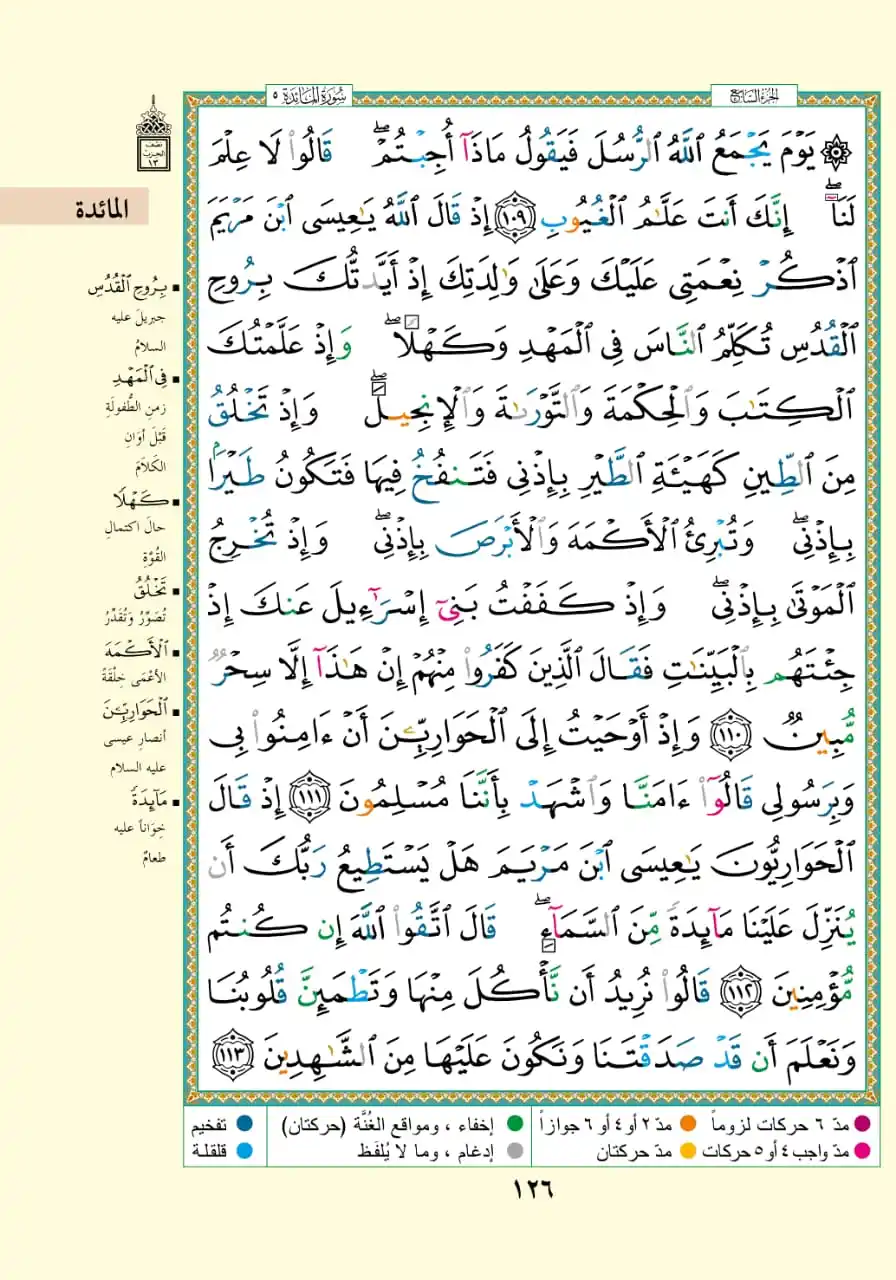 الجزء السابع
سورة المائدة ٥
نصف
الحزب
١٣
المائدة
۞ يَوْمَ يَجْمَعُ ٱللَّهُ ٱلرُّسُلَ فَيَقُولُ مَاذَآ أُجِبْتُمْ ۖ قَالُوا۟ لَا عِلْمَ
لَنَآ ۖ إِنَّكَ أَنتَ عَلَّٰمُ ٱلْغُيُوبِ ١٠٩ إِذْ قَالَ ٱللَّهُ يَٰعِيسَى ٱبْنَ مَرْيَمَ
ٱذْكُرْ نِعْمَتِى عَلَيْكَ وَعَلَىٰ وَٰلِدَتِكَ إِذْ أَيَّدتُّكَ بِرُوحِ
ٱلْقُدُسِ تُكَلِّمُ ٱلنَّاسَ فِى ٱلْمَهْدِ وَكَهْلًا ۖ وَإِذْ عَلَّمْتُكَ
ٱلْكِتَٰبَ وَٱلْحِكْمَةَ وَٱلتَّوْرَىٰةَ وَٱلْإِنجِيلَ ۖ وَإِذْ تَخْلُقُ
مِنَ ٱلطِّينِ كَهَيْـَٔةِ ٱلطَّيْرِ بِإِذْنِى فَتَنفُخُ فِيهَا فَتَكُونُ طَيْرًۢا
بِإِذْنِى ۖ وَتُبْرِئُ ٱلْأَكْمَهَ وَٱلْأَبْرَصَ بِإِذْنِى ۖ وَإِذْ تُخْرِجُ
ٱلْمَوْتَىٰ بِإِذْنِى ۖ وَإِذْ كَفَفْتُ بَنِىٓ إِسْرَٰٓءِيلَ عَنكَ إِذْ
جِئْتَهُم بِٱلْبَيِّنَٰتِ فَقَالَ ٱلَّذِينَ كَفَرُوا۟ مِنْهُمْ إِنْ هَٰذَآ إِلَّا سِحْرٌ
مُّبِينٌ ١١٠ وَإِذْ أَوْحَيْتُ إِلَى ٱلْحَوَارِيِّۦنَ أَنْ ءَامِنُوا۟ بِى
وَبِرَسُولِى قَالُوٓا۟ ءَامَنَّا وَٱشْهَدْ بِأَنَّنَا مُسْلِمُونَ ١١١ إِذْ قَالَ
ٱلْحَوَارِيُّونَ يَٰعِيسَى ٱبْنَ مَرْيَمَ هَلْ يَسْتَطِيعُ رَبُّكَ أَن
يُنَزِّلَ عَلَيْنَا مَآئِدَةً مِّنَ ٱلسَّمَآءِ ۖ قَالَ ٱتَّقُوا۟ ٱللَّهَ إِن كُنتُم
مُّؤْمِنِينَ ١١٢ قَالُوا۟ نُرِيدُ أَن نَّأْكُلَ مِنْهَا وَتَطْمَئِنَّ قُلُوبُنَا
وَنَعْلَمَ أَن قَدْ صَدَقْتَنَا وَنَكُونَ عَلَيْهَا مِنَ ٱلشَّٰهِدِينَ ١١٣
▪ بِرُوحِ ٱلْقُدُسِ
جبريلَ عليه
السلامُ
▪ فِى ٱلْمَهْدِ
زمنِ الطُّفولَةِ
قَبْلَ أوَانِ
الكَلَامَ
▪ كَهْلًا
حالَ اكتمالِ
القُوَّةِ
▪ تَخْلُقُ
تُصَوِّرُ وَتُقَدِّرُ
▪ ٱلْأَكْمَهَ
الأعْمَى خِلْقَةً
▪ ٱلْحَوَارِيِّۦنَ
أنصارِ عيسى
عليه السلام
▪ مَآئِدَةً
خِوَاناً عليه
طعامٌ
مدّ ٦ حركات لزوماً ● مدّ ٢ أو ٤ أو ٦ جوازاً ● إخفاء ، ومواقع الغُنَّة (حركتان) ● تفخيم
مدّ واجب ٤ أو ٥ حركات ● مدّ حركتان ● إدغام ، وما لا يُلفَظ ● قلقلة
١٢٦